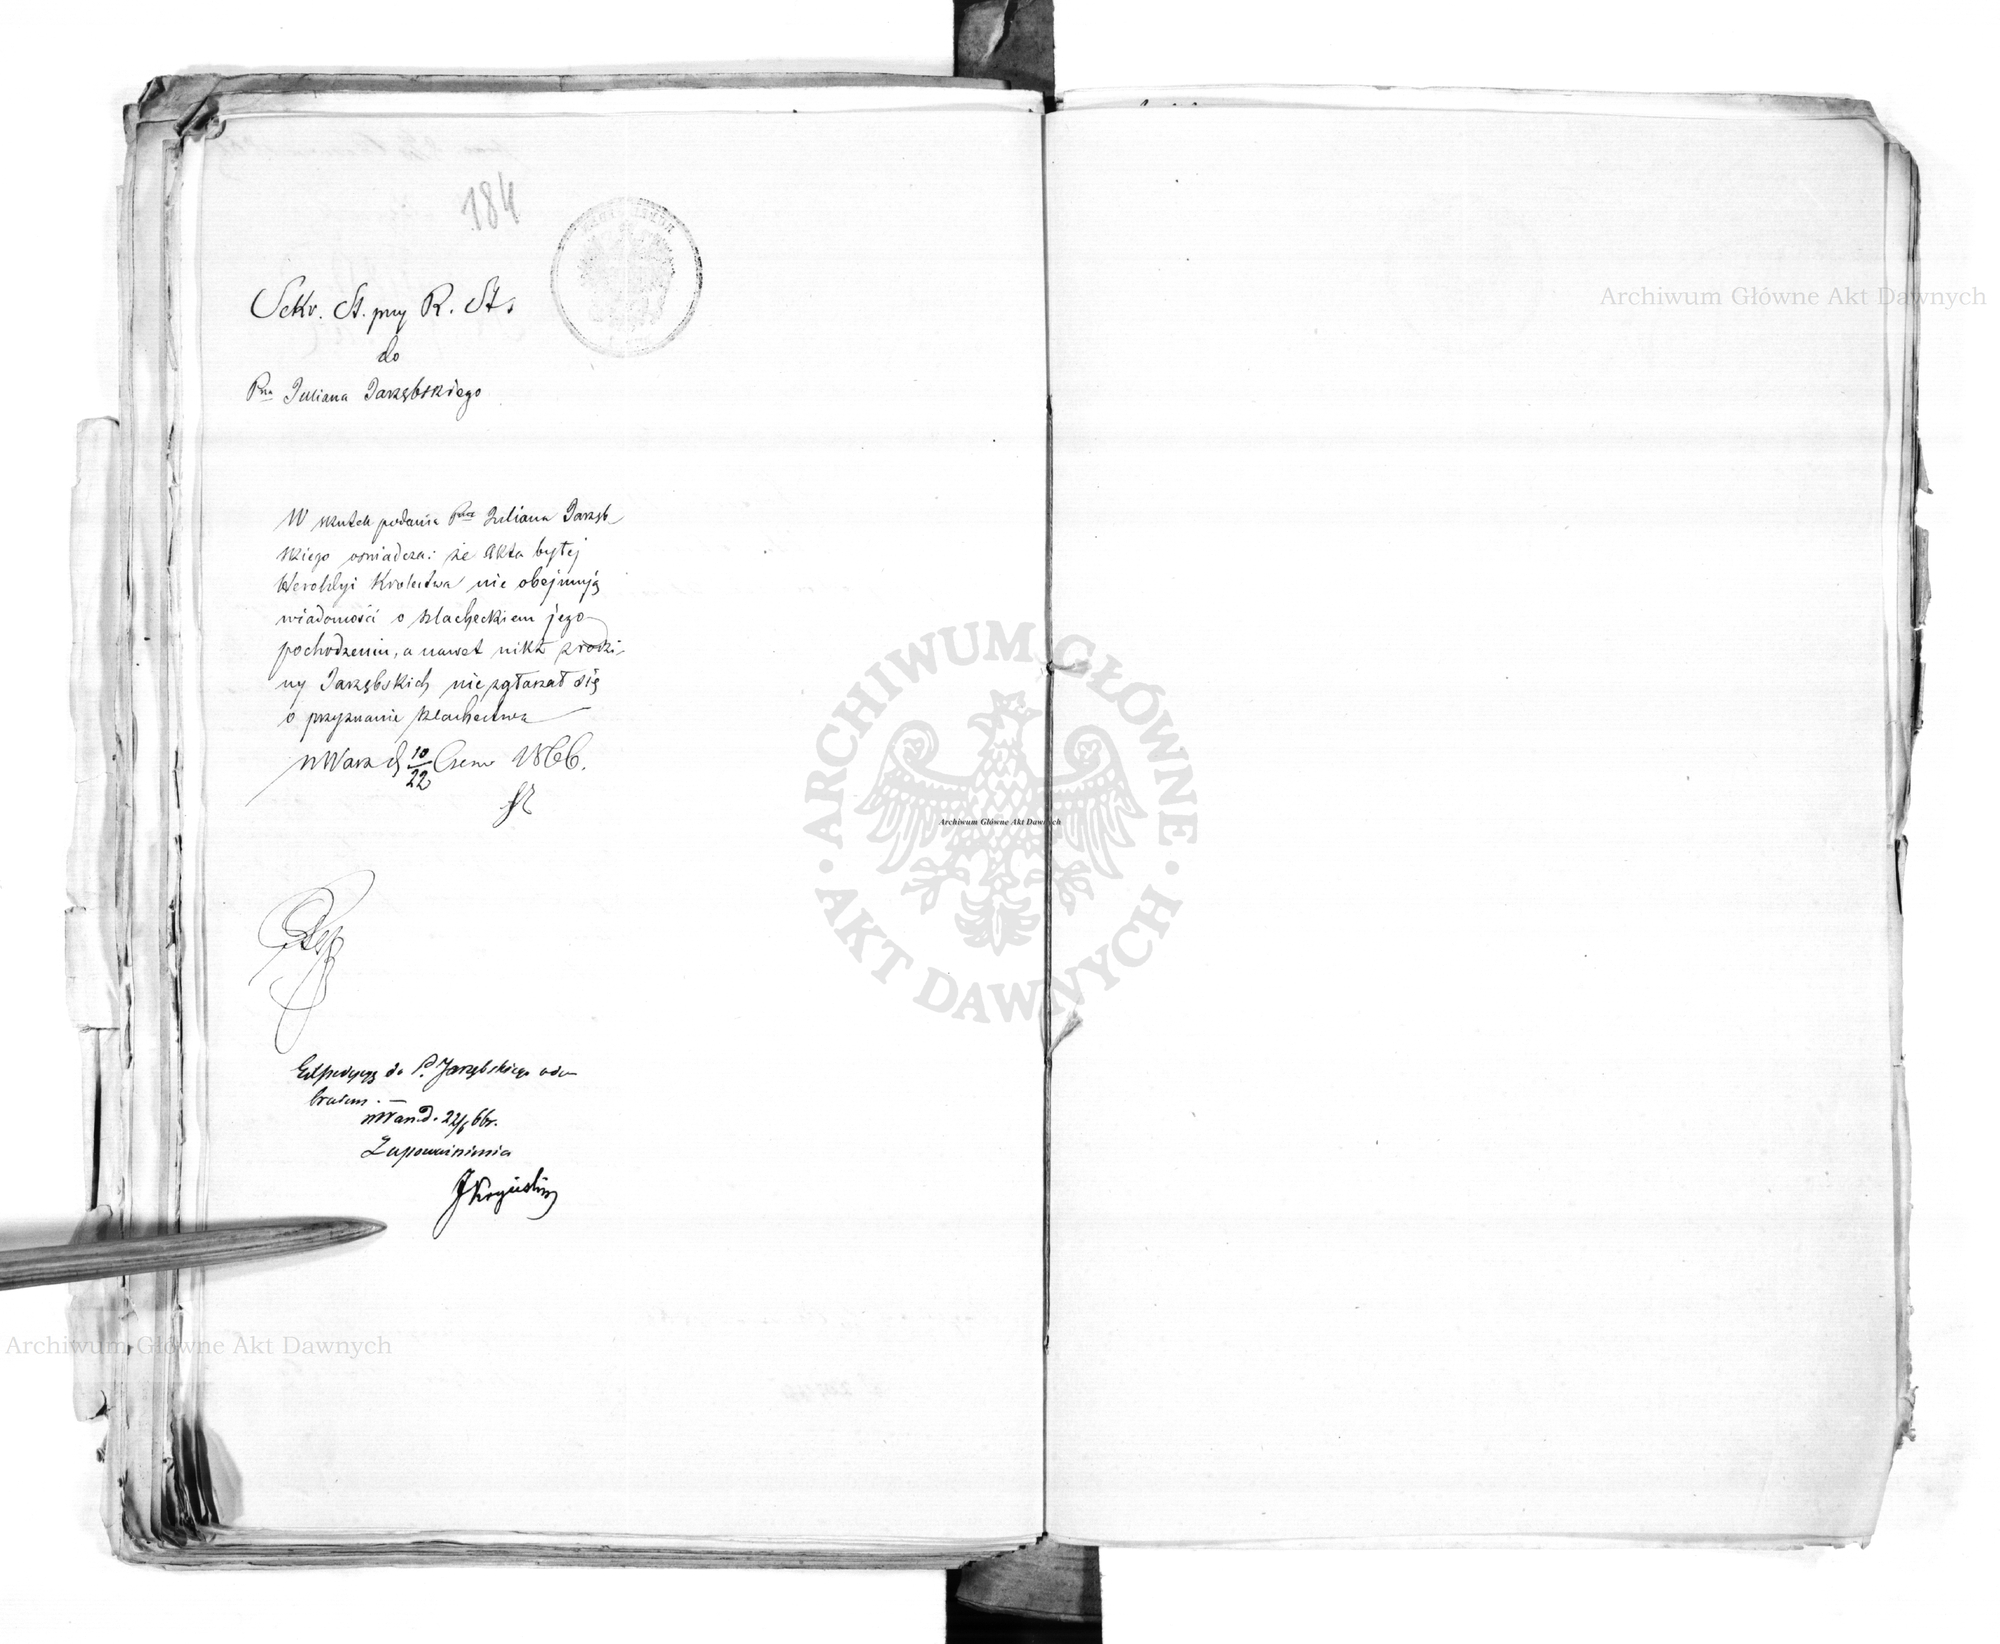 184
Sekr. St. przy R. St.
do
Pna Juliana Jarzębskiego
W skutek podania Pna Juliana Jarzęb-
skiego oswiadcza: że Akta byłej
Heroldyi Krolestwa nie obejmują
wiadomości o szlacheckiem jego
pochodzeniu, a nawet nikt z rodzi-
ny Jarzębskich nie zgłaszał się
o przyznanie szlachectwa
w Warsz d 10/22 Czerw 1866.
Expedycyą do P. Jarzębskiego ode-
brałem. —
w War. d. 22/6 66r.
Archiwum Główne Akt Dawnych
ARCHIWUM GŁÓWNE AKT DAWNYCH
Archiwum Główne Akt Dawnych
Archiwum Główne Akt Dawnych